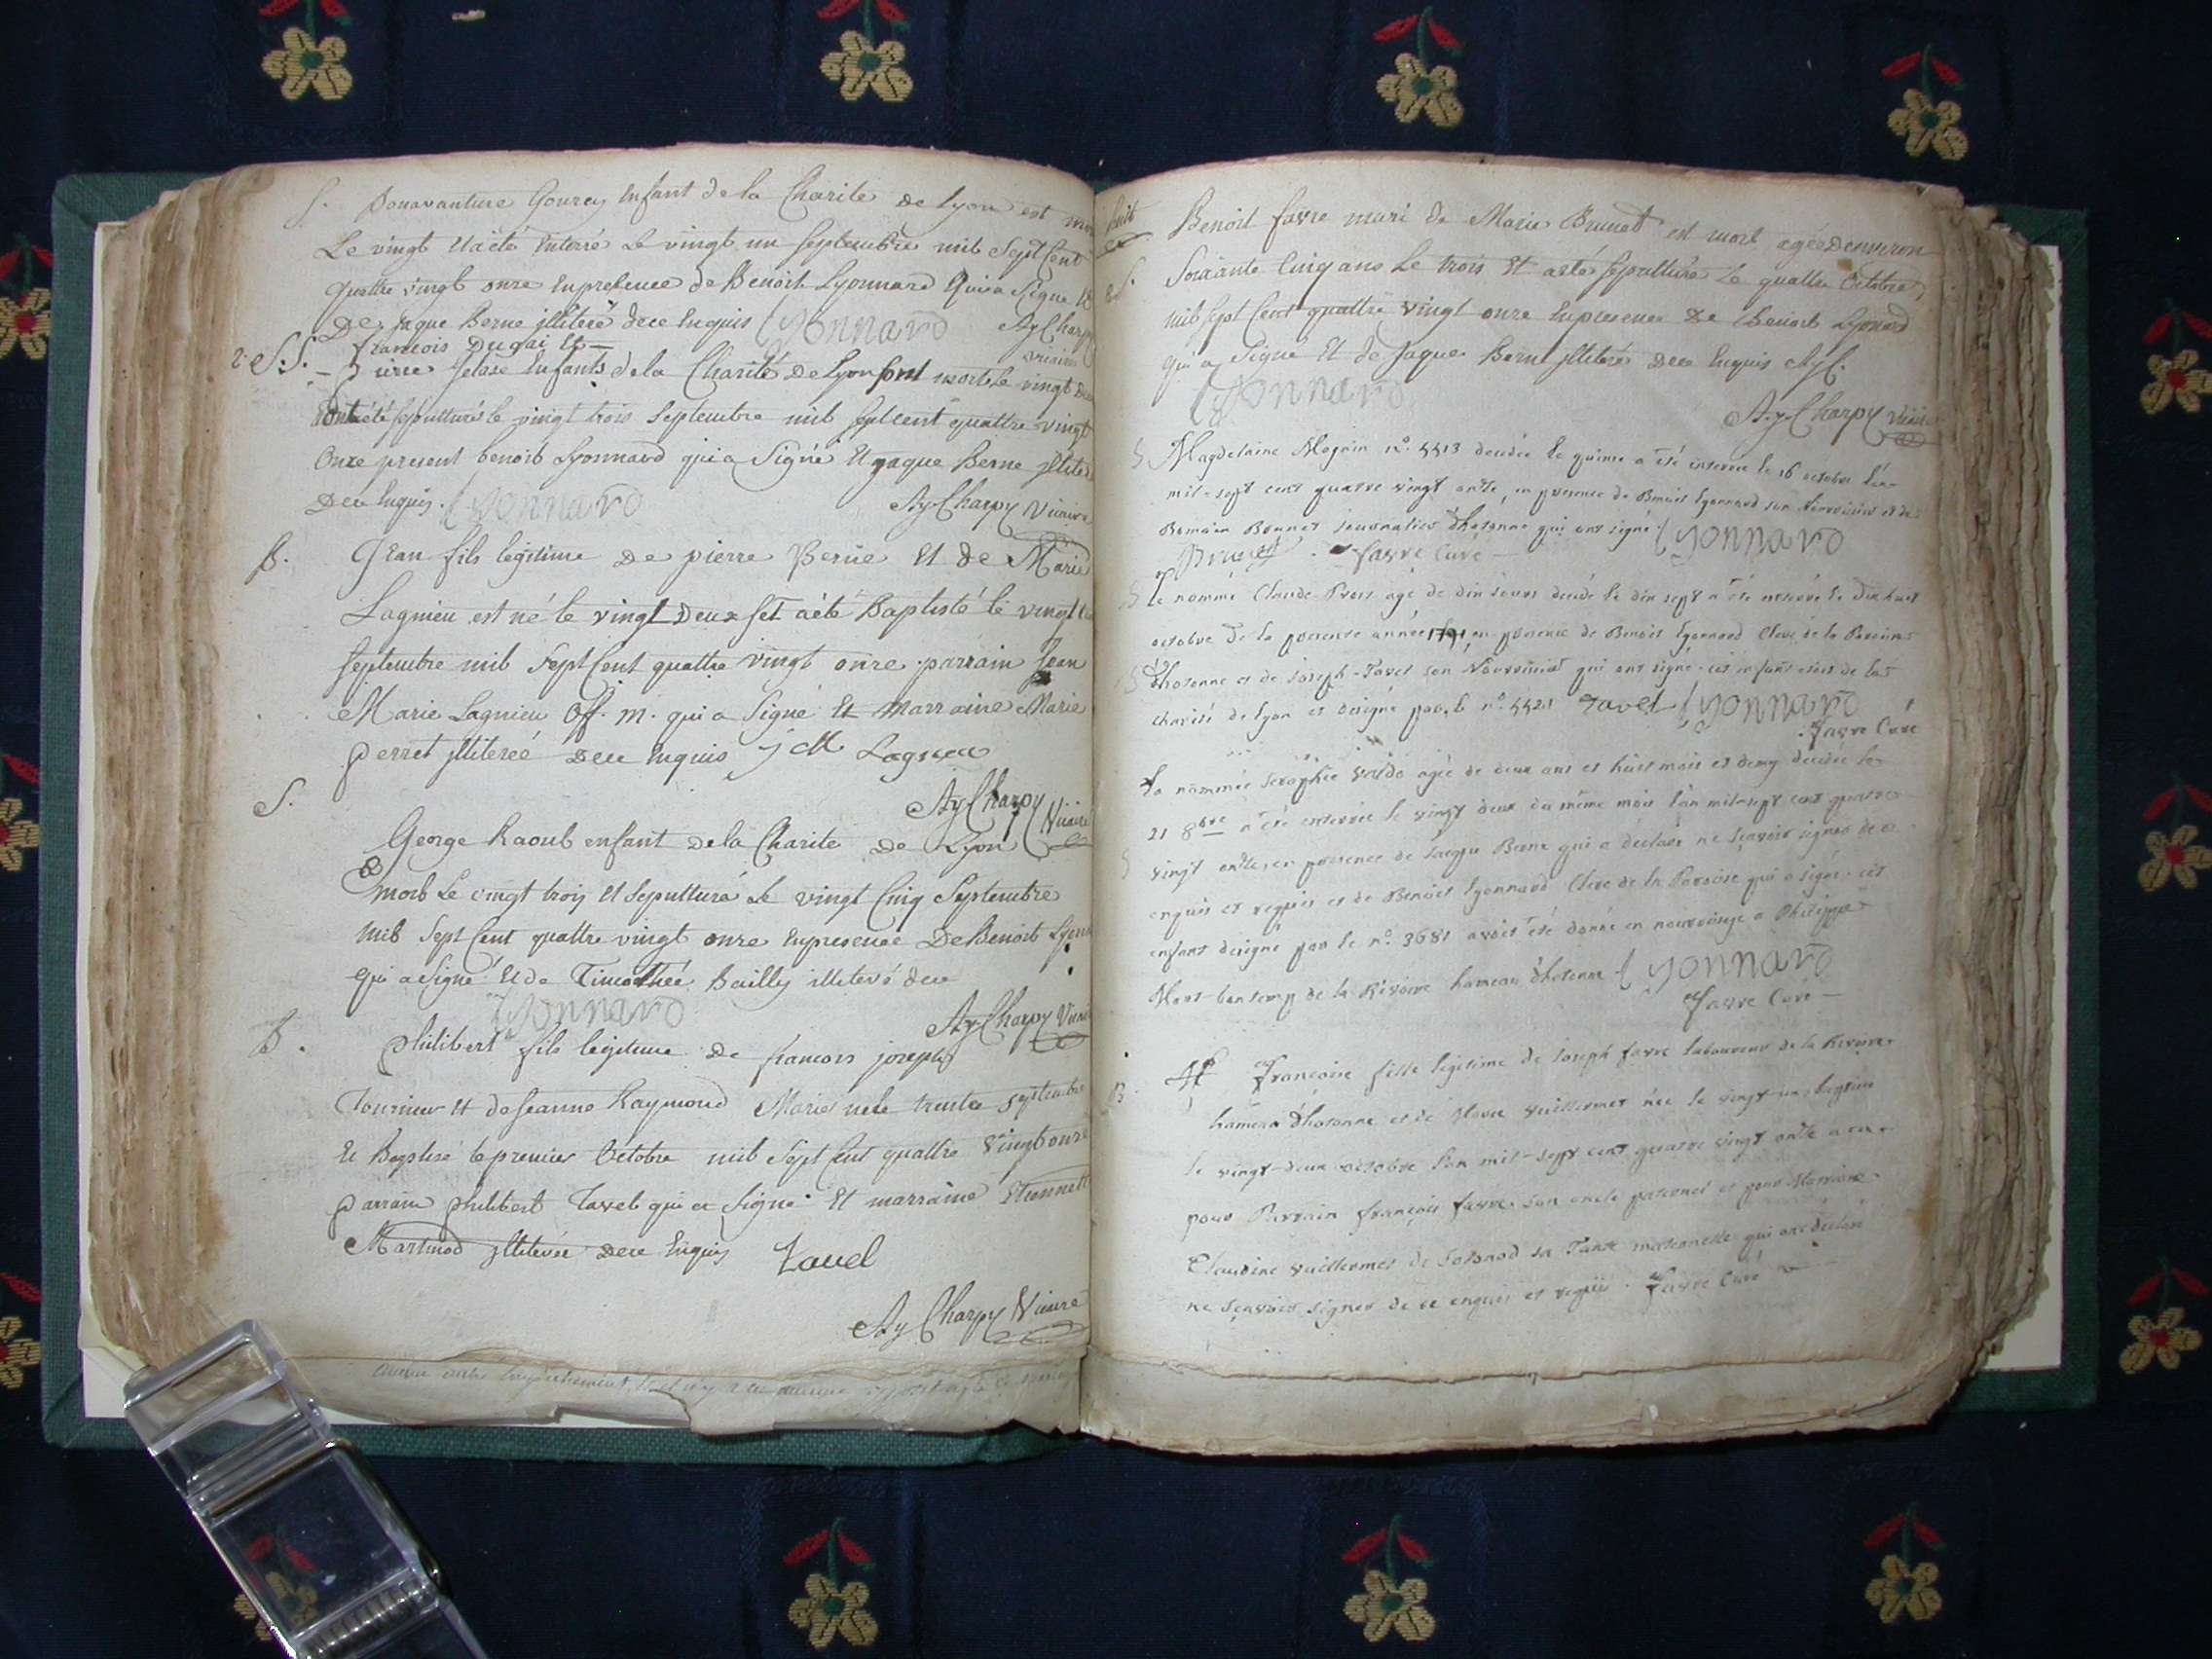 S. Bonavanture Gourey Enfant de la Charité de Lyon est
Le vingt et a été enterré le vingt un septembre mil sept Cent
quattre vingt onze en presence de Benoit Lyonnard qui a signé et
De jaque Berne illiteré de ce enquis Lyonnard Ay Charpy
Vicaire
2. S. S. francois Dugai et
pierre Gelase Enfants de la Charité de Lyon sont morts le vingt deux
ont été sepulturés le vingt trois septembre mil sept cent quattre vingt
Onze present benoit Lyonnard qui a signé et jaque Berne illiteré
De ce enquis. Lyonnard Ay Charpy Vicaire
B. Jean fils legitime de pierre Berne et de Marie
Lagnieu est né le vingt Deux et a été Baptisté le vingt
septembre mil sept Cent quattre vingt onze. parrain Jean
Marie Lagnieu Off. m. qui a signé et marraine Marie
perret illiterée de ce enquis j M Lagnieu
Ay Charpy Vicaire
S. George Raoul enfant de la Charité de Lyon
mort le vingt trois et sepulturé le vingt cinq septembre
mil sept Cent quattre vingt onze en presence De Benoit
qui a signé et de Timothée Bailly illiteré de ce
Lyonnard Ay Charpy Vicaire
B. Philibert fils legitime de francois joseph
Tournier et de Jeanne Raymond Mariés né le trente septembre
et Baptisé le premier Octobre mil sept cent quattre vingt onze
parrain philibert Tavel qui a signé et marraine Etiennette
Martinod illiterée de ce enquis Tavel
Ay Charpy Vicaire
huit
S. Benoit favre mari de Marie Brunet est mort agé d'environ
soixante cinq ans le trois et a été sepulturé le quattre Octobre
mil sept Cent quattre vingt onze en presence de Benoit Lyonard
qui a signé et de jaque Berne illiteré de ce enquis
Lyonnard
Ay Charpy Vicaire
S Magdelaine n°. 5513 décédée le quinze a été enterrée le 16 octobre l'an
mil-sept cent quatre vingt onze, en presence de Benoit Lyonnard son Nourricier et de
Romain Brunet journalier d'hotonne qui ont signé. Lyonnard
Brunet favre Curé
S Le nommé Claude agé de dix jours décédé le dix sept a été enterré le dix huit
octobre de la presente année 1791, en presence de Benoit Lyonnard Clerc de la Paroisse
d'hotonne et de joseph Tavel son Nourricier qui ont signé. cet enfant etoit de la
charité de Lyon et designé par le n°. 5521 Tavel Lyonnard
favre Curé
La nommée Seraphie Valdo agée de deux ans et huit mois et demy decedée le
21 8bre a été enterrée le vingt deux du même mois l'an mil-sept cent quatre
S vingt onze, en presence de Jacque Berne qui a déclaré ne sçavoir signer de ce
enquis et requis et de Benoit Lyonnard Clerc de la Paroisse qui a signé. cet
enfant designé par le n°. 3681 avoit été donné en nourrissage a Philippe
de la Rivoire hameau d'hotonne Lyonnard
favre Curé
B. françoise fille legitime de joseph favre laboureur de la Rivoire
hameau d'hotonne et de Marie Vuillermet née le vingt-un, baptisée
le vingt-deux octobre l'an mil-sept cent quatre vingt onze a eu
pour Parrain françois favre son oncle paternel et pour Marraine
Claudine Vuillermet de sa Tante maternelle qui ont déclaré
ne sçavoir signer de ce enquis et requis. favre Curé